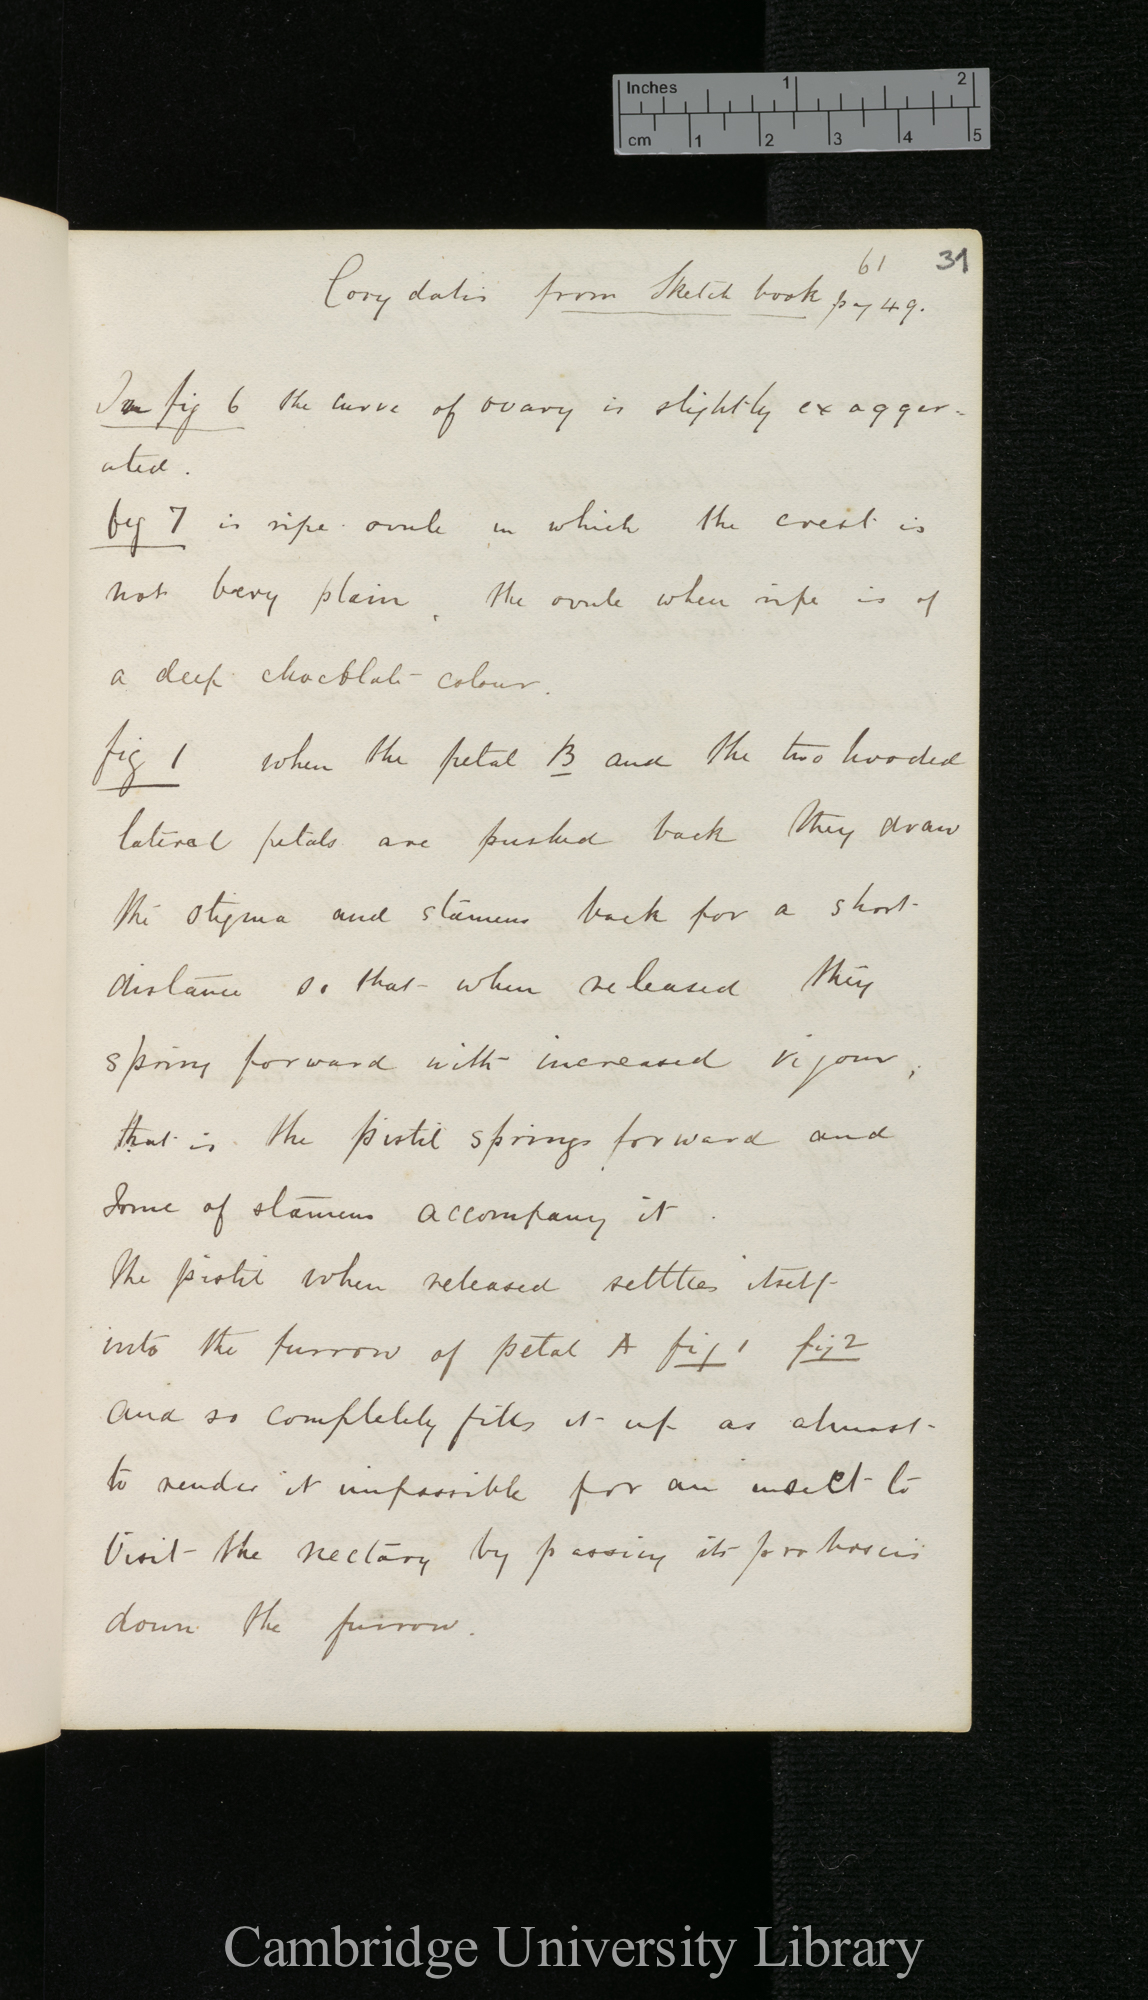 Inches 1 2
cm 1 2 3 4 5
61 31
Corydalis from Sketch book pag 49.
In fig 6 the curve of ovary is slightly exagger-
ated.
fig 7 is ripe ovule in which the crest is
not very plain, the ovule when ripe is of
a deep chocolate colour.
fig 1 when the petal B and the two hooded
lateral petals are pushed back they draw
the stigma and stamens back for a short
distance so that when released they
spring forward with increased vigour,
that is the pistil springs forward and
some of stamens accompany it.
the pistil when released settles itself
into the furrow of petal A fig 1 fig 2
and so completely fills it up as almost
to render it impossible for an insect to
Visit the nectary by passing its proboscis
down the furrow.
Cambridge University Library